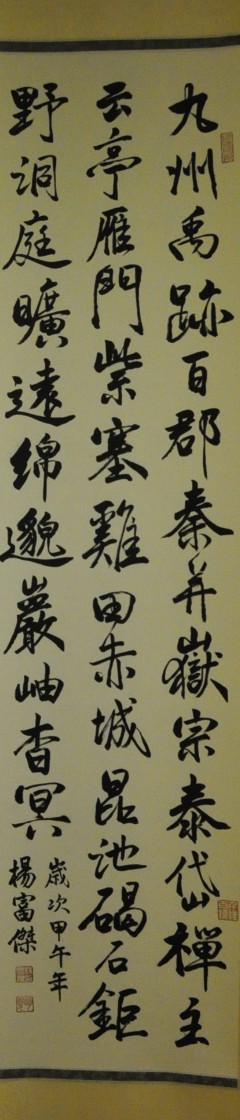 九州禹跡百郡秦并嶽宗泰岱禪主
云亭雁門紫塞雞田赤城昆池碣石鉅
野洞庭曠遠綿邈巖岫杳冥
歲次甲午年
楊富傑